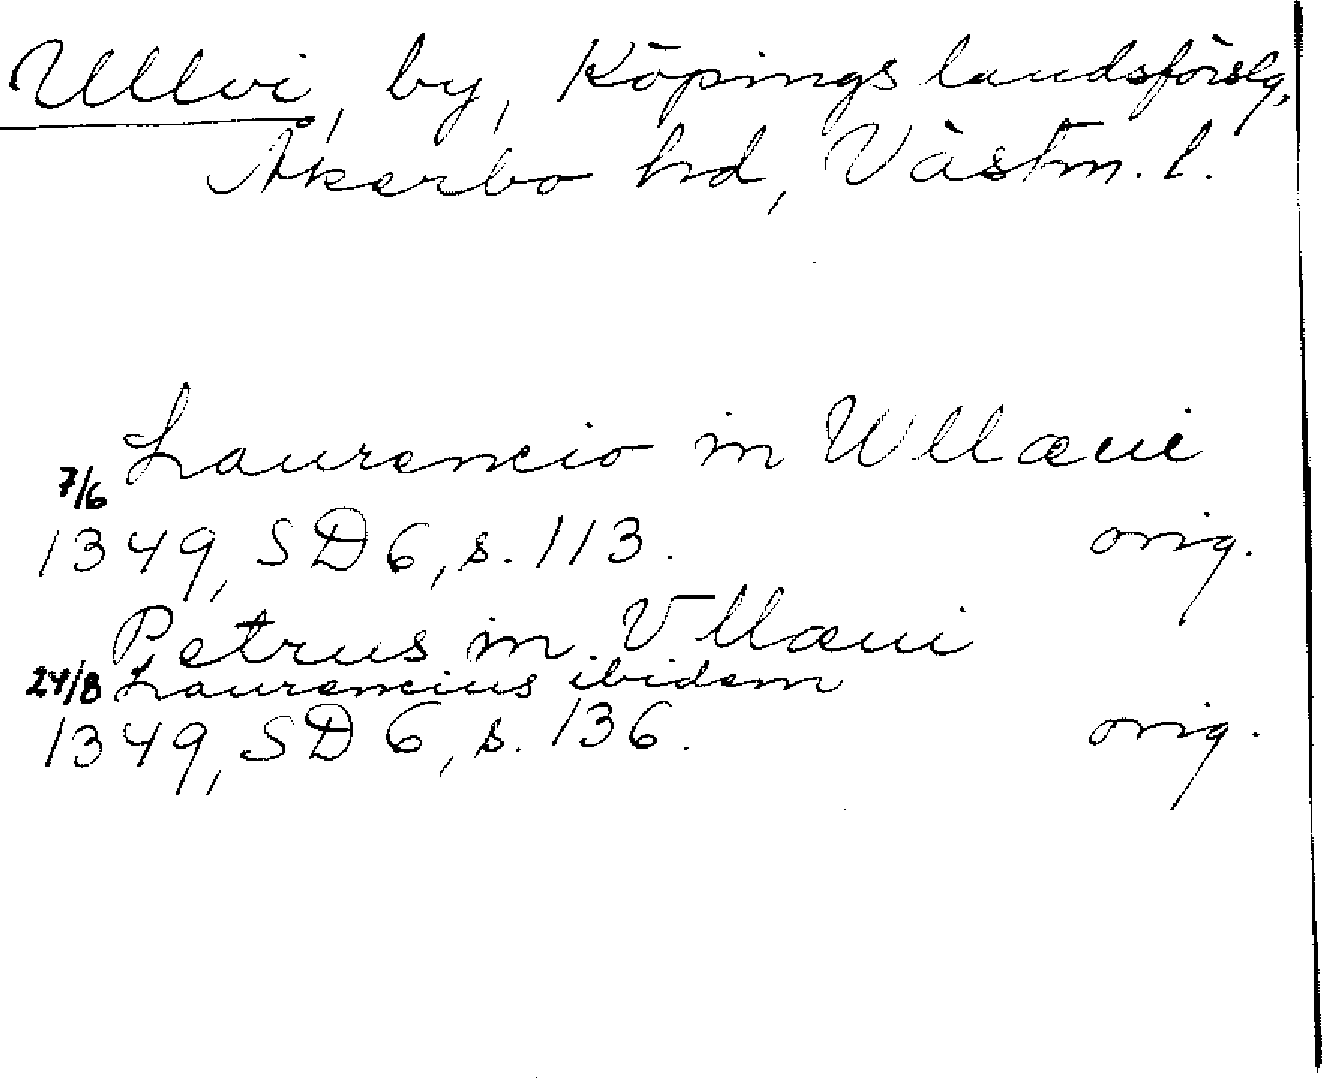 Ullvi, by, Köpings landsförslg,
Åkerbo hd, Västm. l.
Laurencio in Wllæui
7/6
1349, SD 6, s. 113. orig.
Petrus in Vllæui
24/8 Laurencius ibidem
1349, SD 6, s. 136. orig.